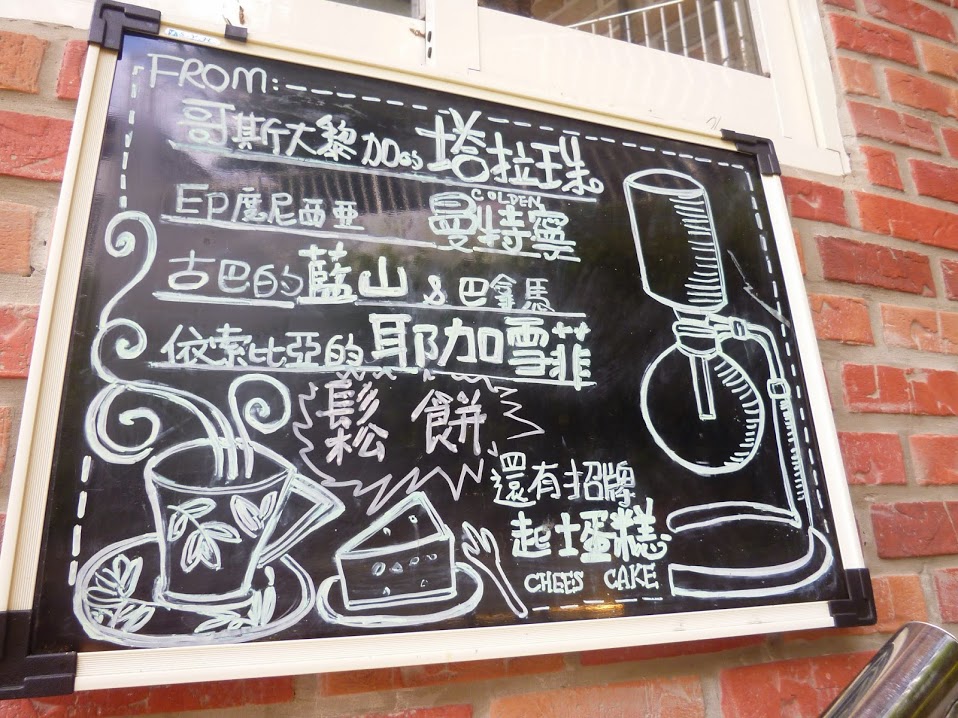 FROM:
哥斯大黎加的 塔拉珠
GOLDEN
印度尼西亞 曼特寧
古巴的藍山 & 巴拿馬
依索比亞的 耶加雪菲
鬆餅
還有招牌
起士蛋糕
CHEES CAKE